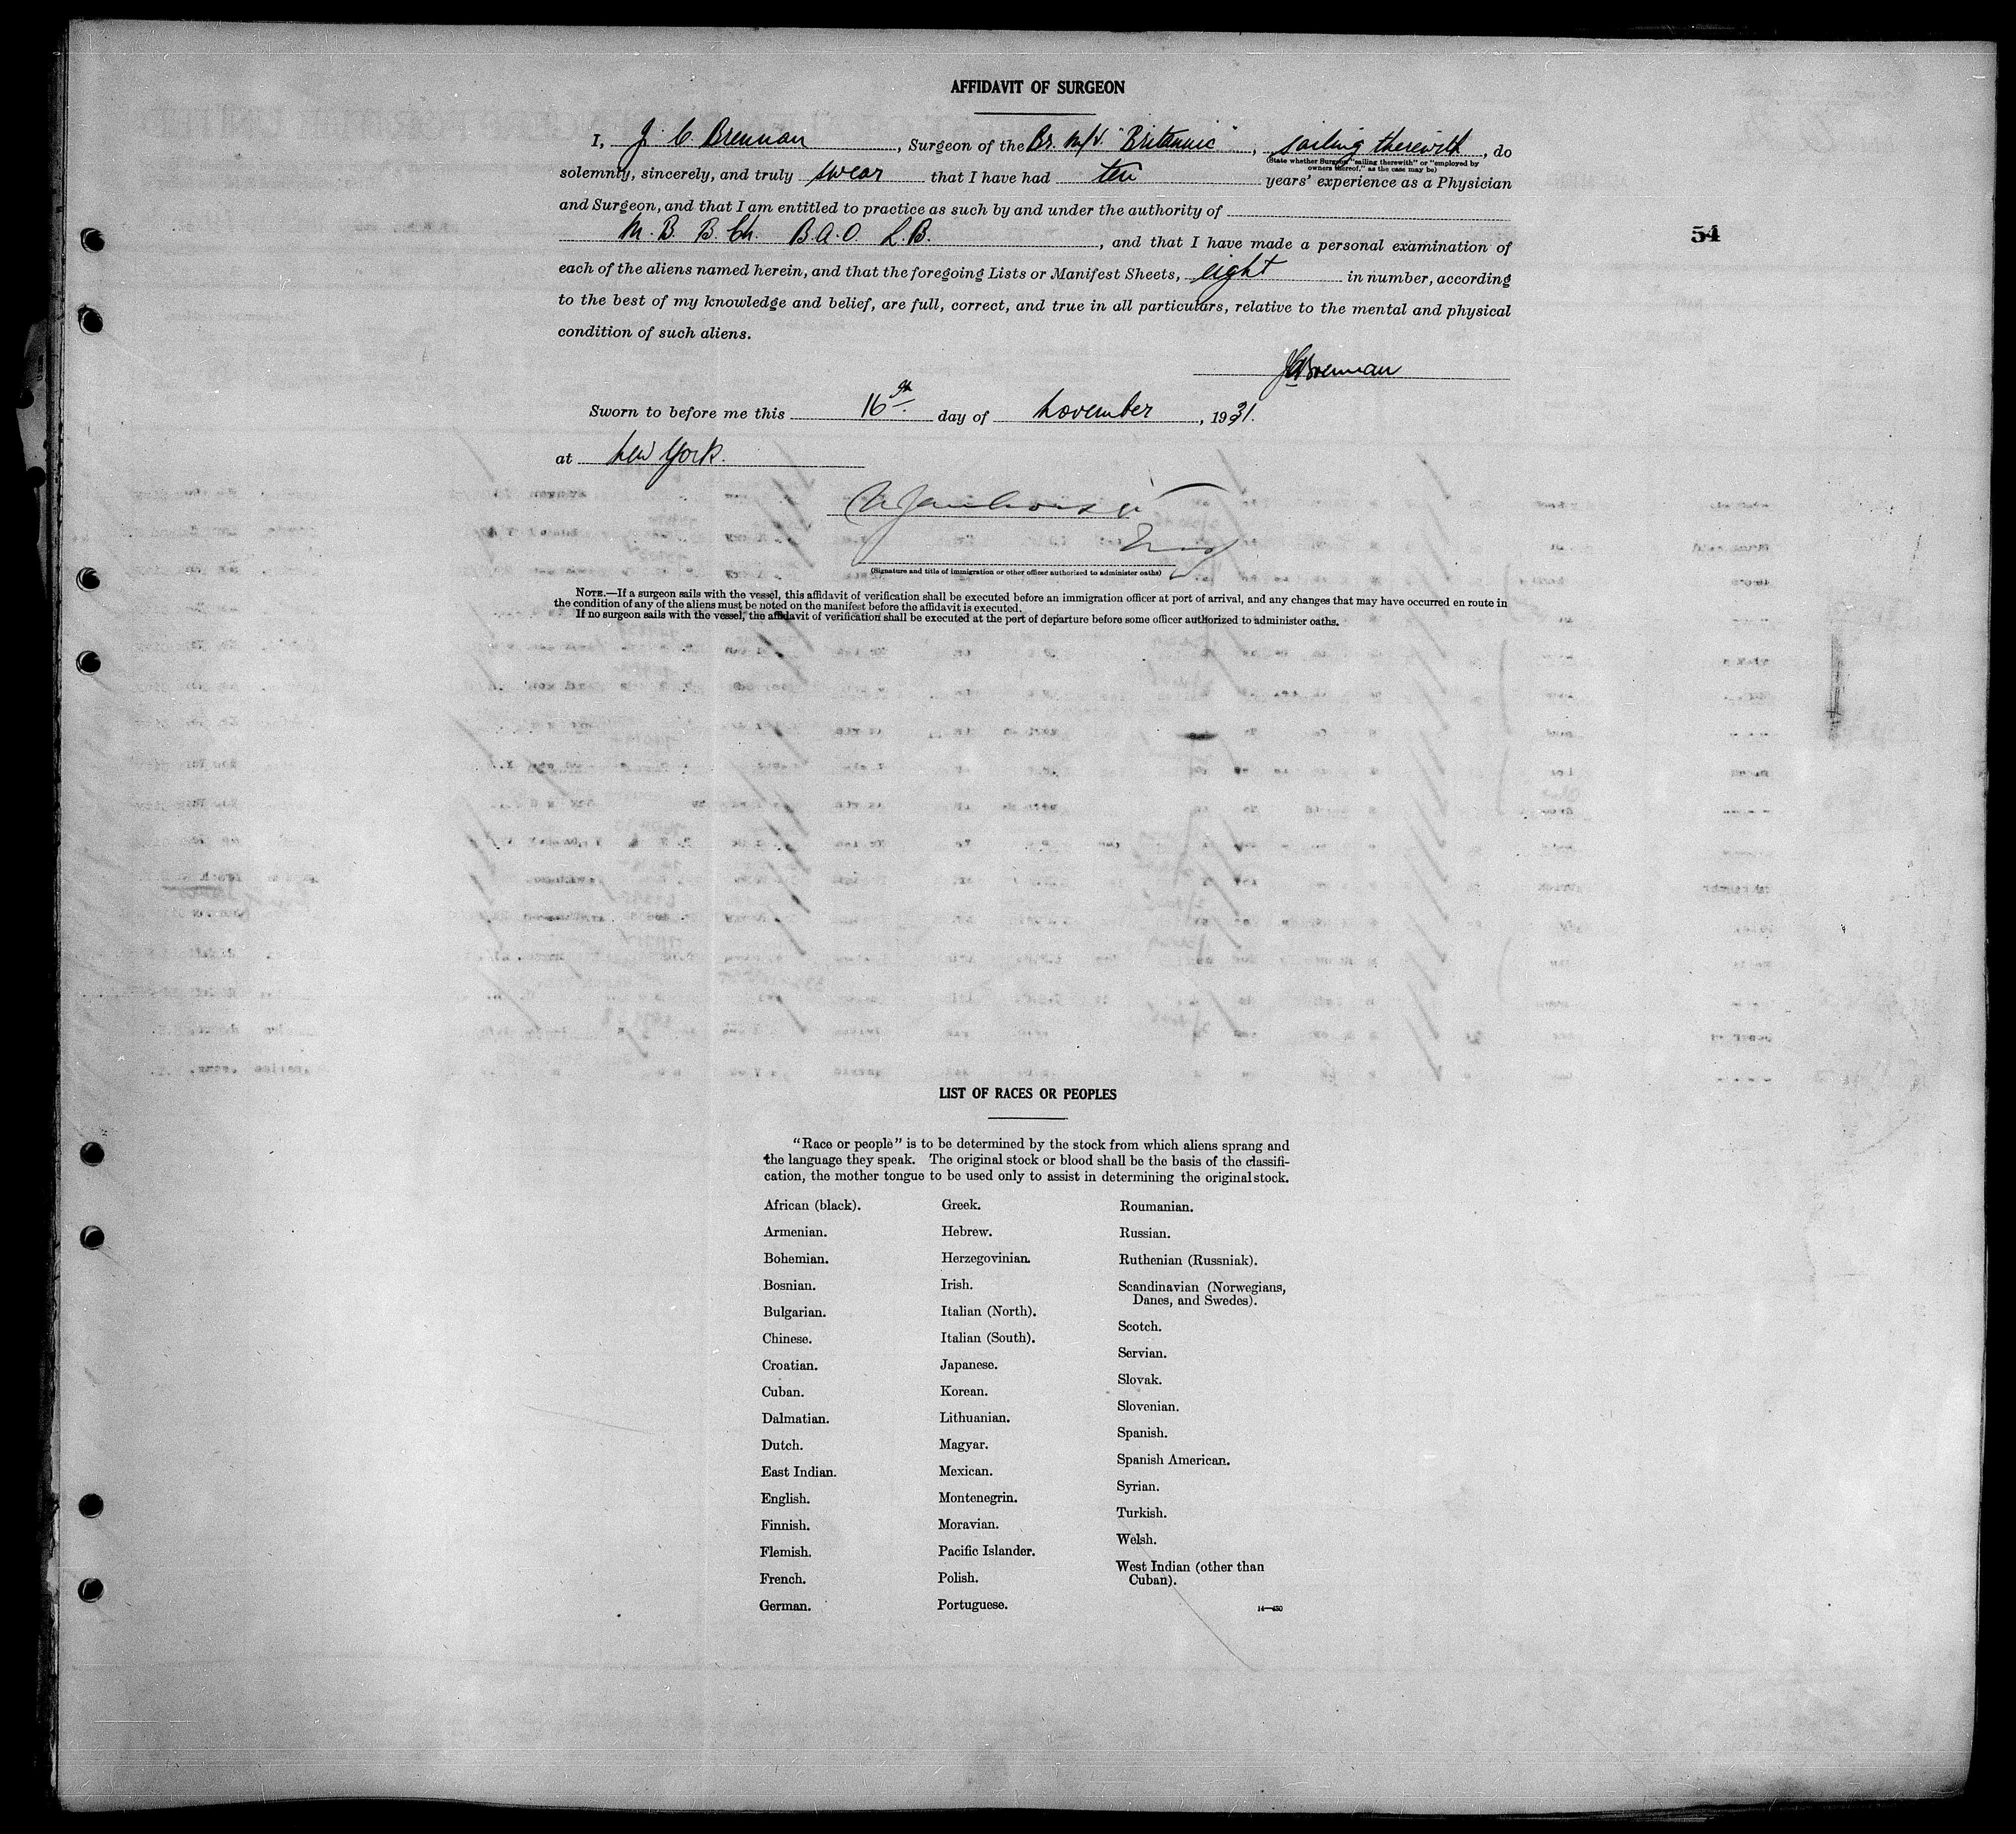 AFFIDAVIT OF SURGEON
I, J. C Brennan, Surgeon of the Br. M/V. "Britannic", sailing therewith, do
(State whether Surgeon "sailing therewith" or "employed by
owners thereof," as the case may be)
solemnly, sincerely, and truly swear that I have had ten years' experience as a Physician
and Surgeon, and that I am entitled to practice as such by and under the authority of
M. B. B. Ch. B.A.O. L.B., and that I have made a personal examination of
54
each of the aliens named herein, and that the foregoing Lists or Manifest Sheets, eight in number, according
to the best of my knowledge and belief, are full, correct, and true in all particulars, relative to the mental and physical
condition of such aliens.
JCBrennan
Sworn to before me this 16th day of november, 1931.
at New York.
(Signature and title of immigration or other officer authorized to administer oaths)
NOTE.—If a surgeon sails with the vessel, this affidavit of verification shall be executed before an immigration officer at port of arrival, and any changes that may have occurred en route in
the condition of any of the aliens must be noted on the manifest before the affidavit is executed.
If no surgeon sails with the vessel, the affidavit of verification shall be executed at the port of departure before some officer authorized to administer oaths.
LIST OF RACES OR PEOPLES
"Race or people" is to be determined by the stock from which aliens sprang and
the language they speak. The original stock or blood shall be the basis of the classifi-
cation, the mother tongue to be used only to assist in determining the original stock.
African (black).
Armenian.
Bohemian.
Bosnian.
Bulgarian.
Chinese.
Croatian.
Cuban.
Dalmatian.
Dutch.
East Indian.
English.
Finnish.
Flemish.
French.
German.
Greek.
Hebrew.
Herzegovinian.
Irish.
Italian (North).
Italian (South).
Japanese.
Korean.
Lithuanian.
Magyar.
Mexican.
Montenegrin.
Moravian.
Pacific Islander.
Polish.
Portuguese.
Roumanian.
Russian.
Ruthenian (Russniak).
Scandinavian (Norwegians,
Danes, and Swedes).
Scotch.
Servian.
Slovak.
Slovenian.
Spanish.
Spanish American.
Syrian.
Turkish.
Welsh.
West Indian (other than
Cuban).
14—430